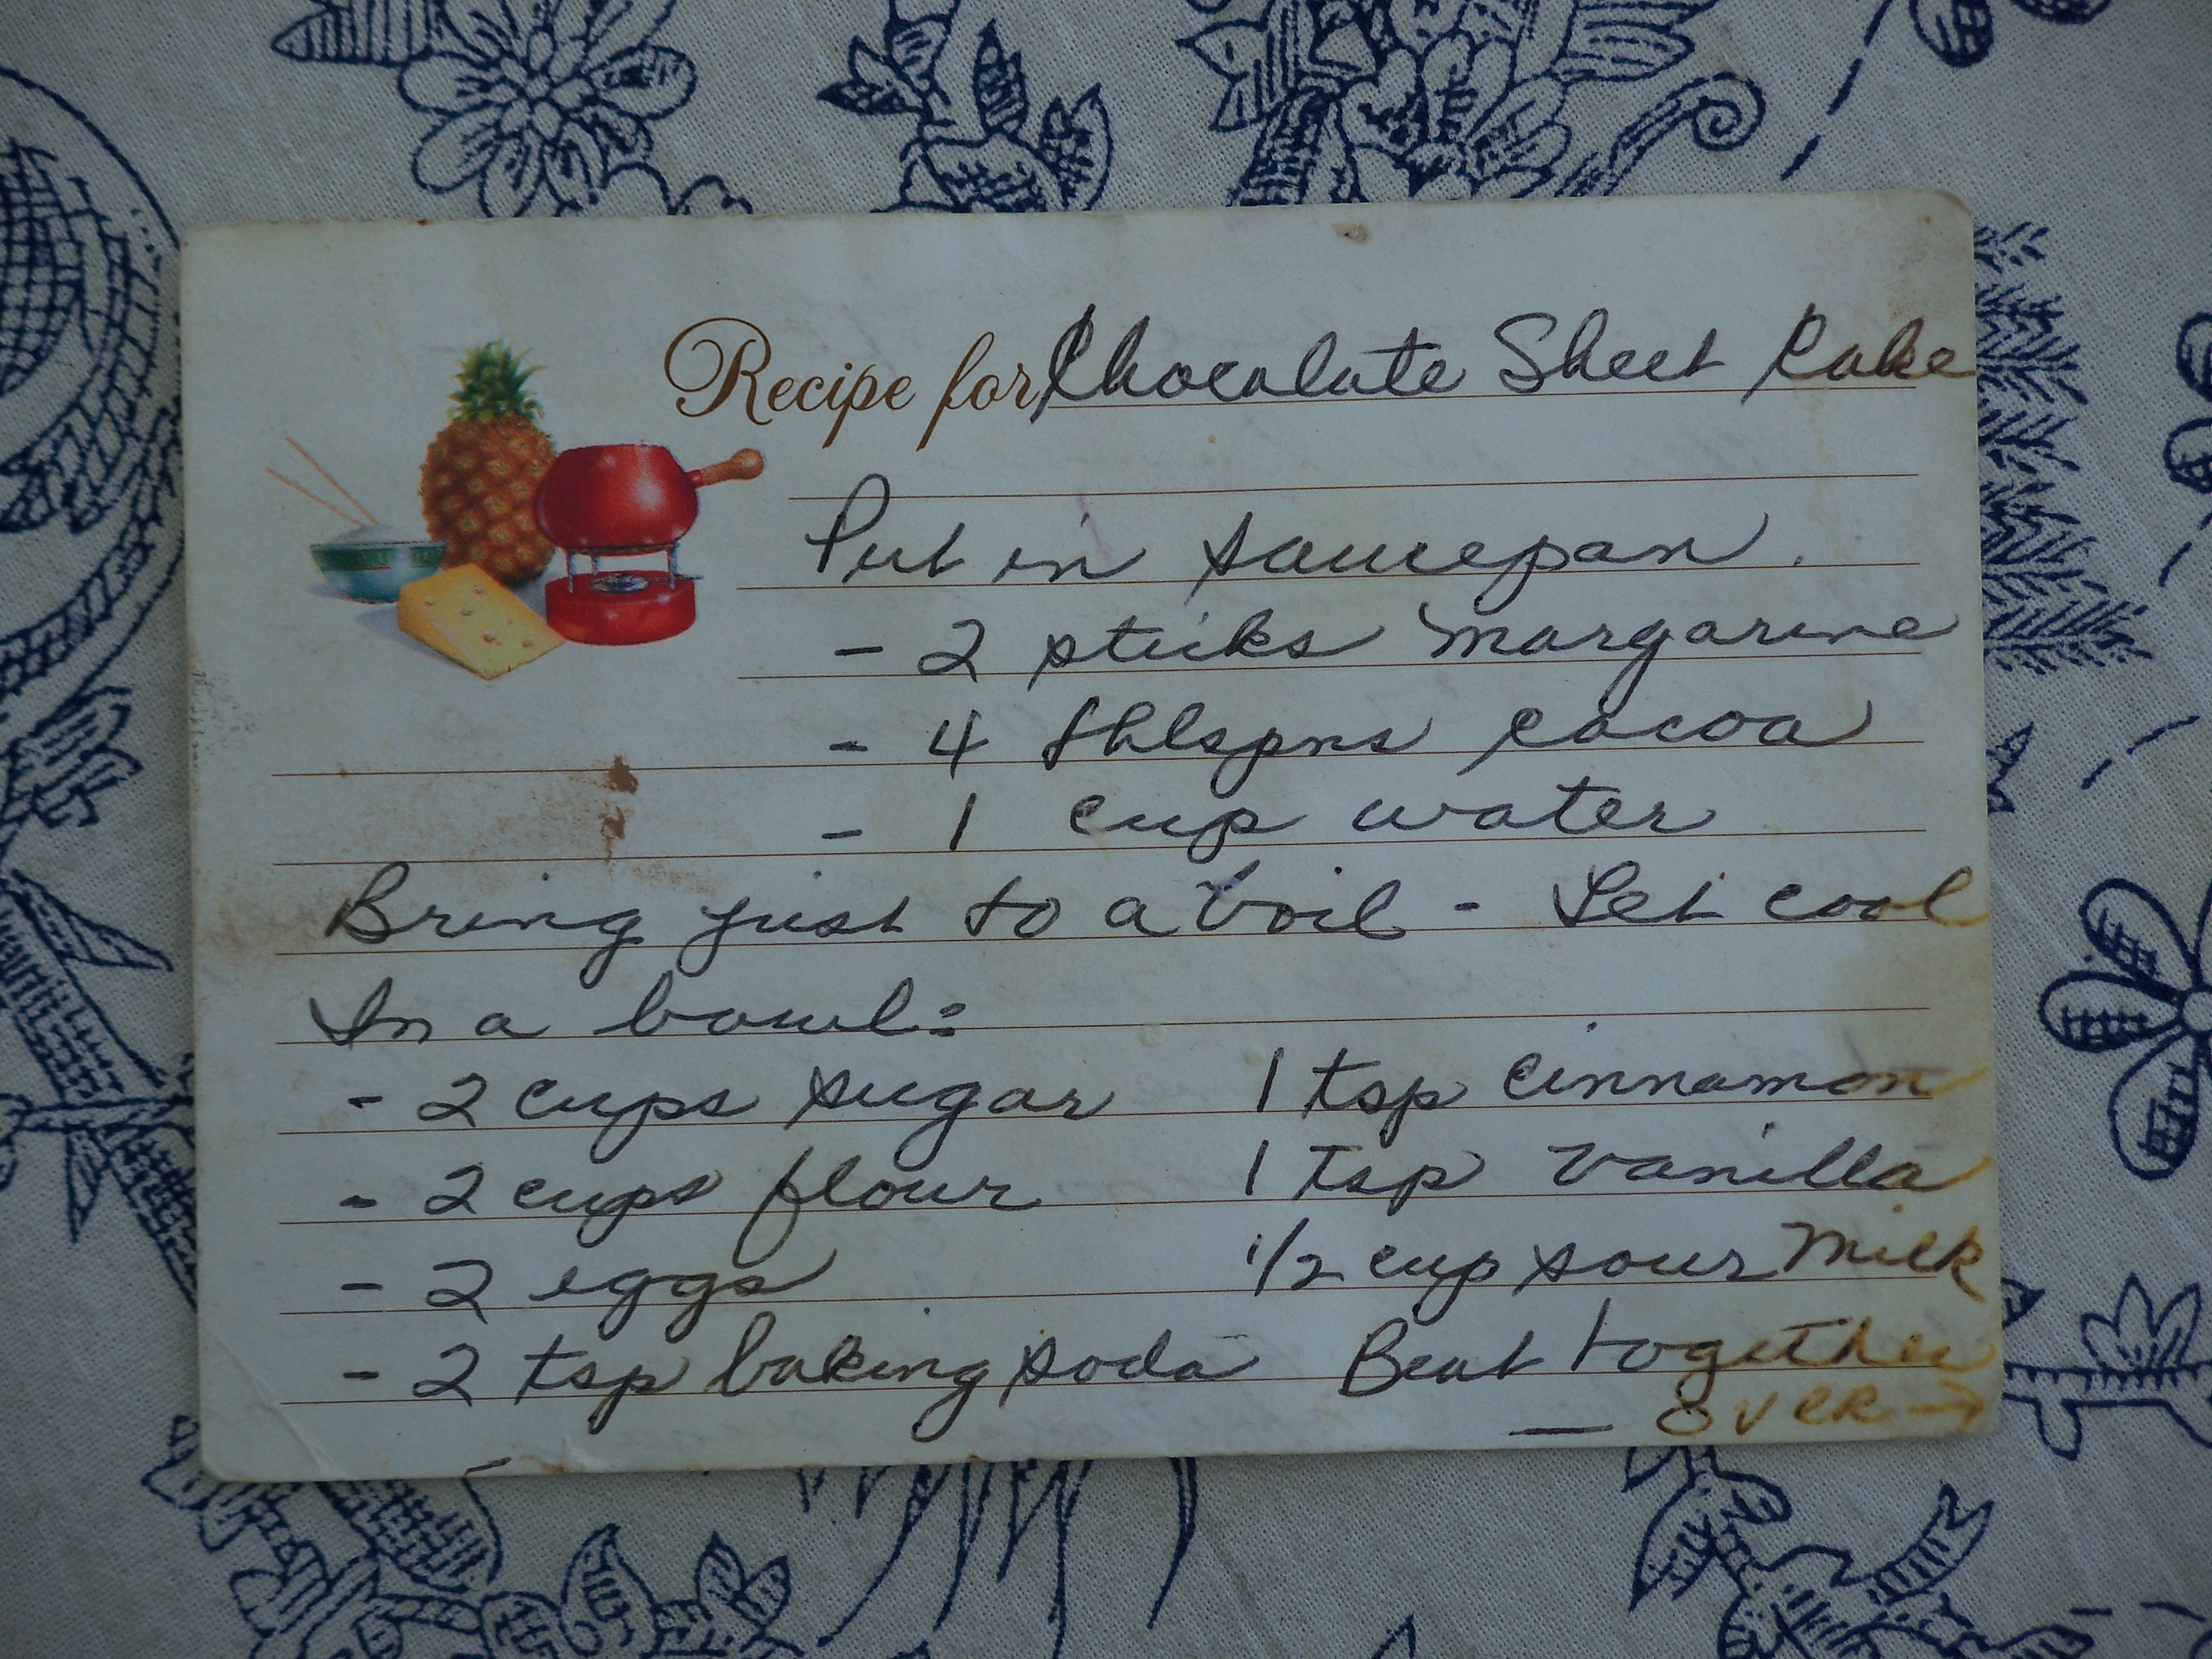 Recipe for Chocolate Sheet Cake
Put in saucepan.
- 2 sticks margarine
- 4 tblspns cocoa
- 1 cup water
Bring just to a boil - Let cool
In a bowl:
- 2 cups sugar 1 tsp cinnamon
- 2 cups flour 1 tsp vanilla
- 2 eggs 1/2 cup sour milk
- 2 tsp baking soda Beat together
— over →